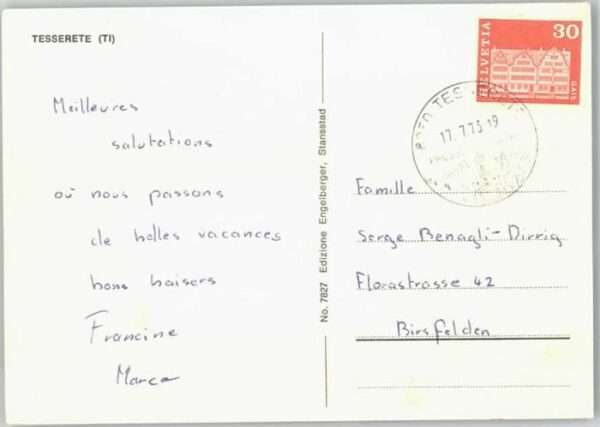 TESSERETE (TI)
Meilleures
salutations
où nous passons
de belles vacances
bons baisers
Francine
Marco
No. 7827 Edizione Engelberger, Stansstad
HELVETIA
30
GAIS
17.7.73 19
Famille
Serge Benagli-Dirrig
Florastrasse 42
Birsfelden